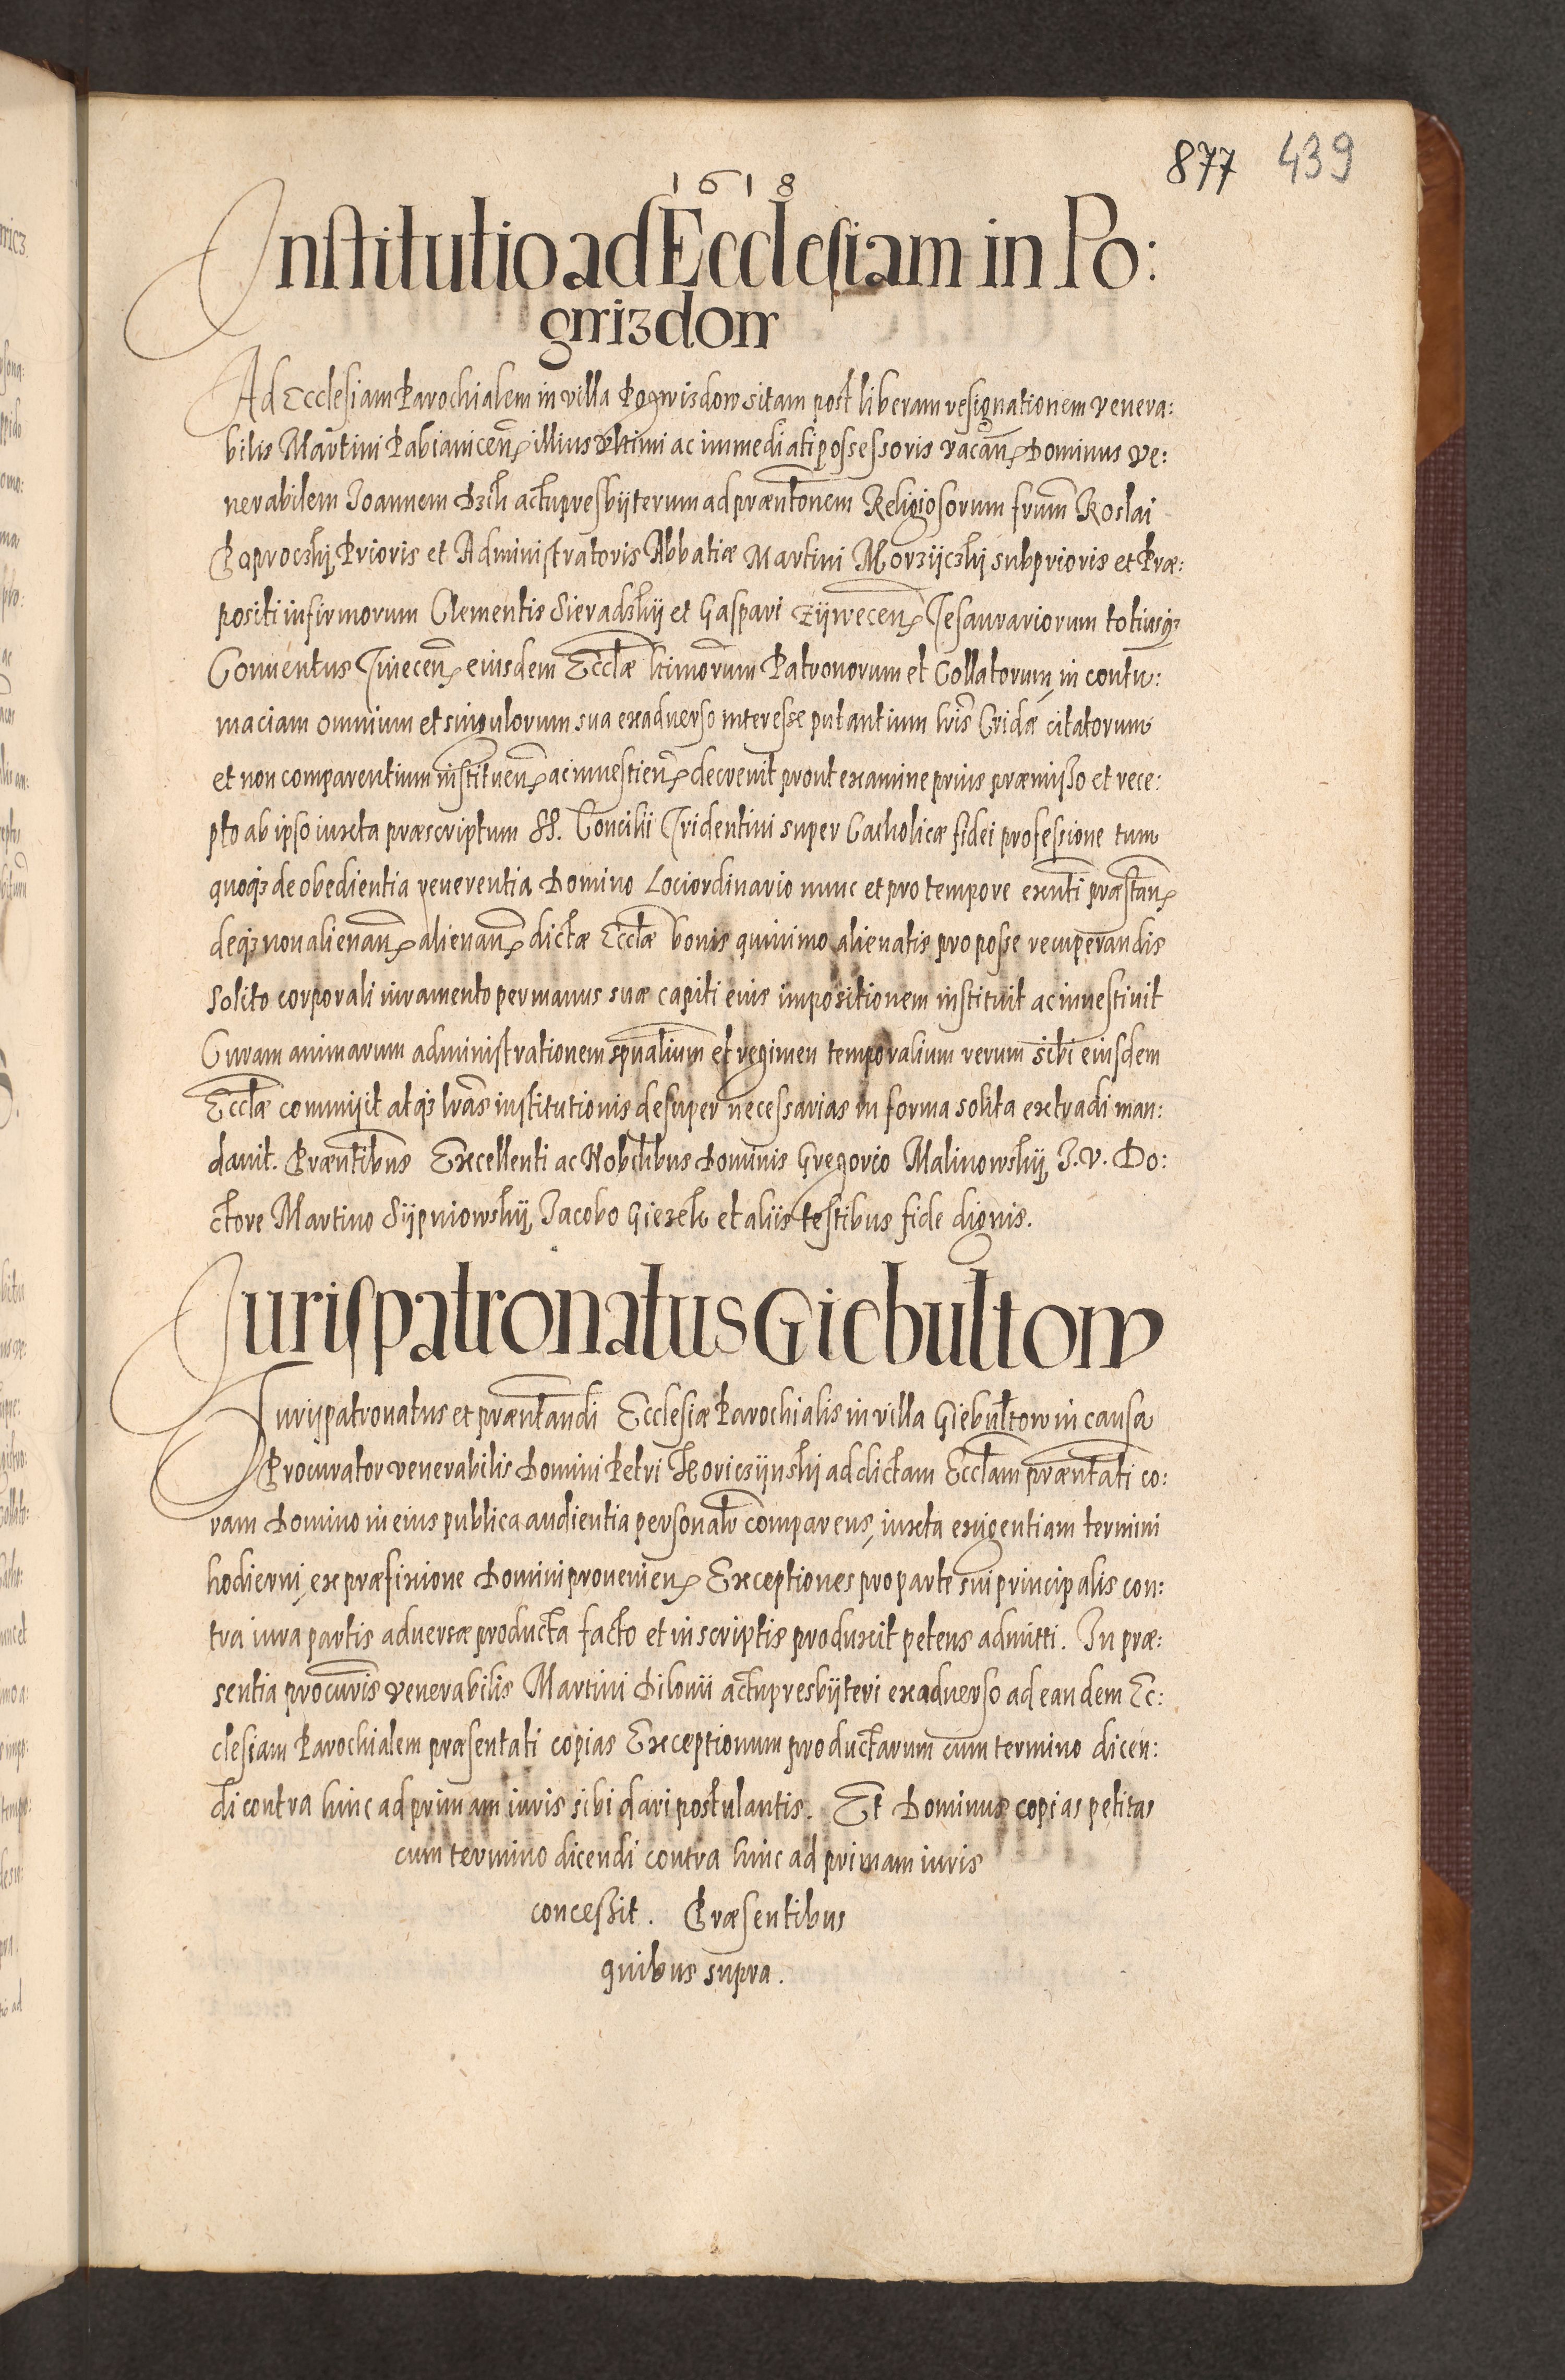 877 439
1618
Institutio ad Ecclesiam in Po:
gwizdow
Ad Ecclesiam Parochialem in villa Pogwizdow sitam post liberam resignationem venera:
bilis Martini Pabianiceñ illius ultimi ac immediati possessoris vacañ Dominus Ve:
nerabilem Ioannem actu presbyterum ad præntõnem Religiosorum frum̃
Prioris et Administratoris Abbatiæ Martini Morzyczky subprioris et Præ:
positi infirmorum Clementis Sieradzky et Gaspari Zyweceñ Tesaurariorum totiusq3
Conventus Tineceñ eiusdem Ecclæ ltimorum Patronorum et Collatorum, in contu:
maciam omnium et singulorum sua exadverso interesse putantium lris Cridæ citatorum
et non comparentium instituen̄ ac investien̄ decrevit prout examine prius præmisso et rece:
pto ab ipso iuxta præscriptum SS. Concilii Tridentini super Catholicæ fidei professione tum
quoq3 de obedientia reverentia Domino Loci ordinario nunc et pro tempore exnti præstan̄
deq3 non alienan̄ alienan̄ dictæ Ecclæ bonis quinimo alienatis pro posse recuperandis
solito corporali iuramento per manus suæ capiti eius impositionem instituit ac investivit
Curam animarum administrationem spualium et regimen temporalium rerum sibi eiusdem
Ecclæ commisit atq3 lras institutionis desuper necessarias in forma solita extradi man:
davit. Præntibus Excellenti ac Nobilibus Dominis Gregorio Malinowsky, I. V. Do:
ctore Martino Sypniowsky, Iacobo Gierek et aliis testibus fide dignis.
Iurispatronatus Giebultow
Iurispatronatus et præntandi Ecclesiæ Parochialis in villa Giebultow in causa
Procurator venerabilis Domini Petri ad dictam Ecclam præntati co:
ram Domino in eius publica audientia personalr comparens, iuxta exigentiam termini
hodierni, ex præfixione Domini provenien̄ Exceptiones pro parte sui principalis con:
tra iura partis adversæ producta facto et in scriptis produxit petens admitti. In præ:
sentia procuris venerabilis Martini Dilonii actu presbyteri exadverso ad eandem Ec:
clesiam Parochialem præsentati copias Exceptionum productarum cum termino dicen:
di contra hinc ad primam iuris sibi dari postulantis. Et Dominus copias petitas
cum termino dicendi contra hinc ad primam iuris
concessit. Præsentibus
quibus supra.